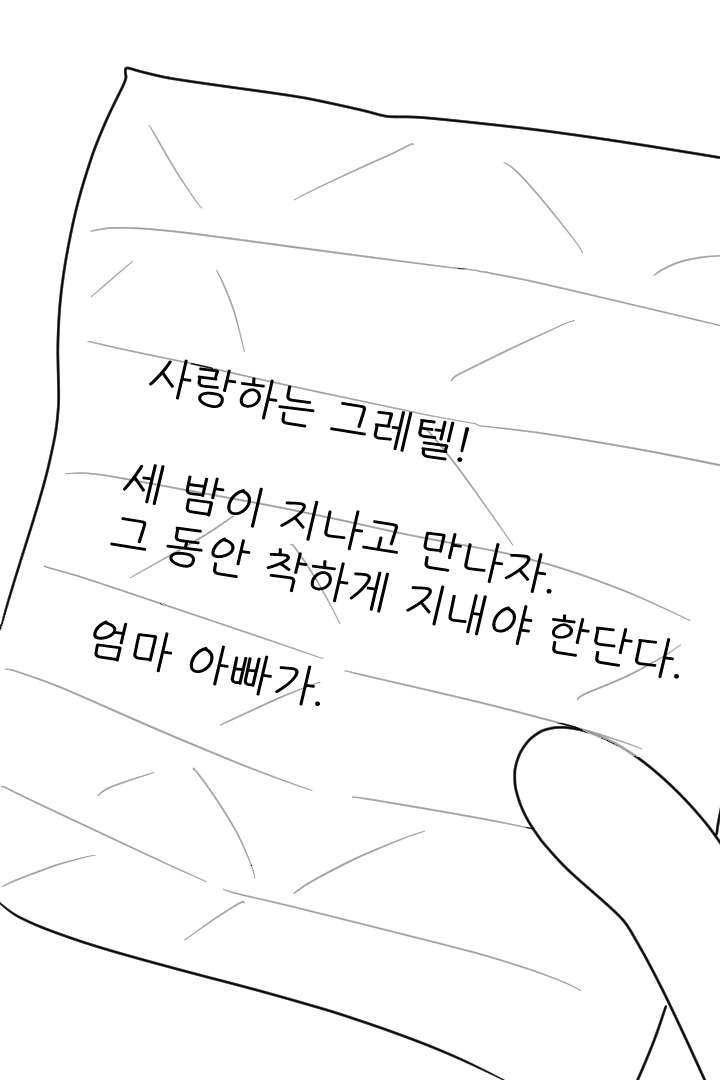 사랑하는 그레텔!
세 밤이 지나고 만나자.
그 동안 착하게 지내야 한단다.
엄마 아빠가.